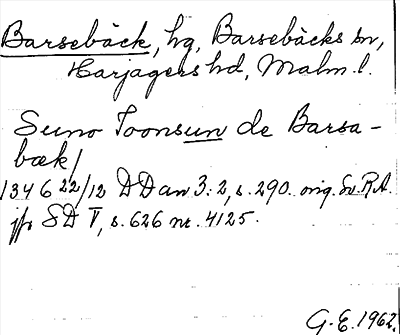 Barsebäck, hg, Barsebäcks sn,
Harjagers hd, Malm. l.
Suno Toonsun de Barsa-
bæk/
1346 22/12 DDan 3:2, s. 290. orig. Sv. R.A.
jfr SD V, s. 626 nr. 4125.
G. E. 1962.